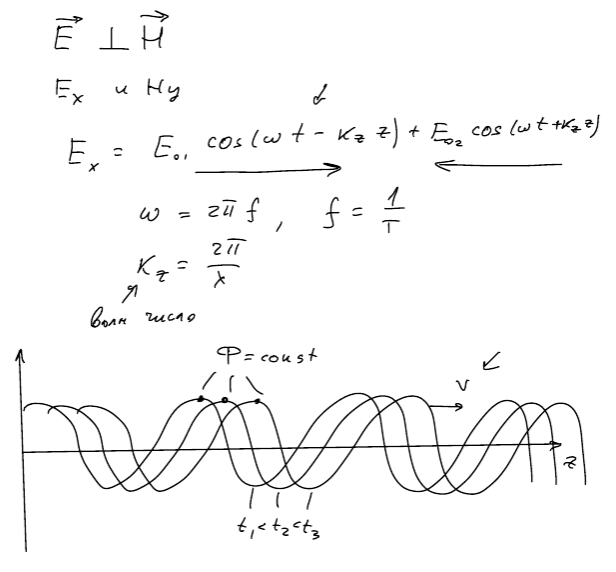 E ⊥ H
Ex и Hy
Ex = E01 cos(ωt - Kz z) + E02 cos(ωt + Kz z)
ω = 2π f, f = 1/T
Kz = 2π/λ
волн число
Φ = const
v
z
t1 < t2 < t3